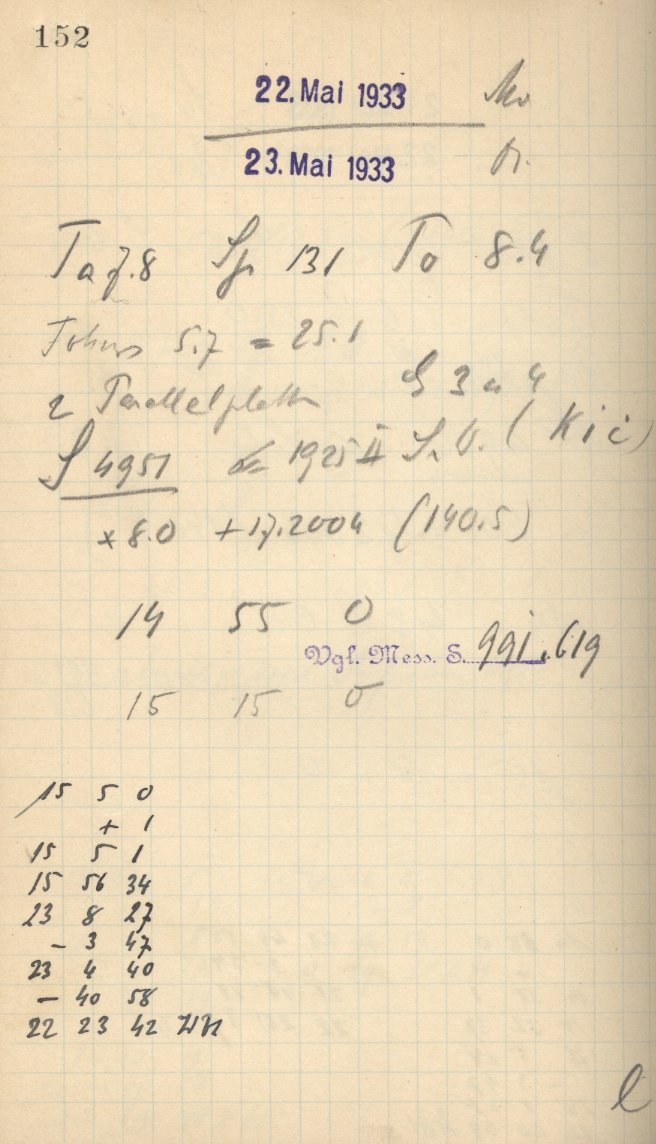 152
22. Mai 1933 Mo
23. Mai 1933 Di.
Taf. 8 Sp 131 To 8.4
Fokus 5.7 = 25.1
2 Parallelplatten S 3 u 4
S 4951 1925 II (Kič)
* 8.0 + 17.2004 (140.5)
14 55 0
Vgl. Mess. S. 991.619
15 15 0
15 5 0
+ 1
15 5 1
15 56 34
23 8 27
- 3 47
23 4 40
- 40 58
22 23 42
l